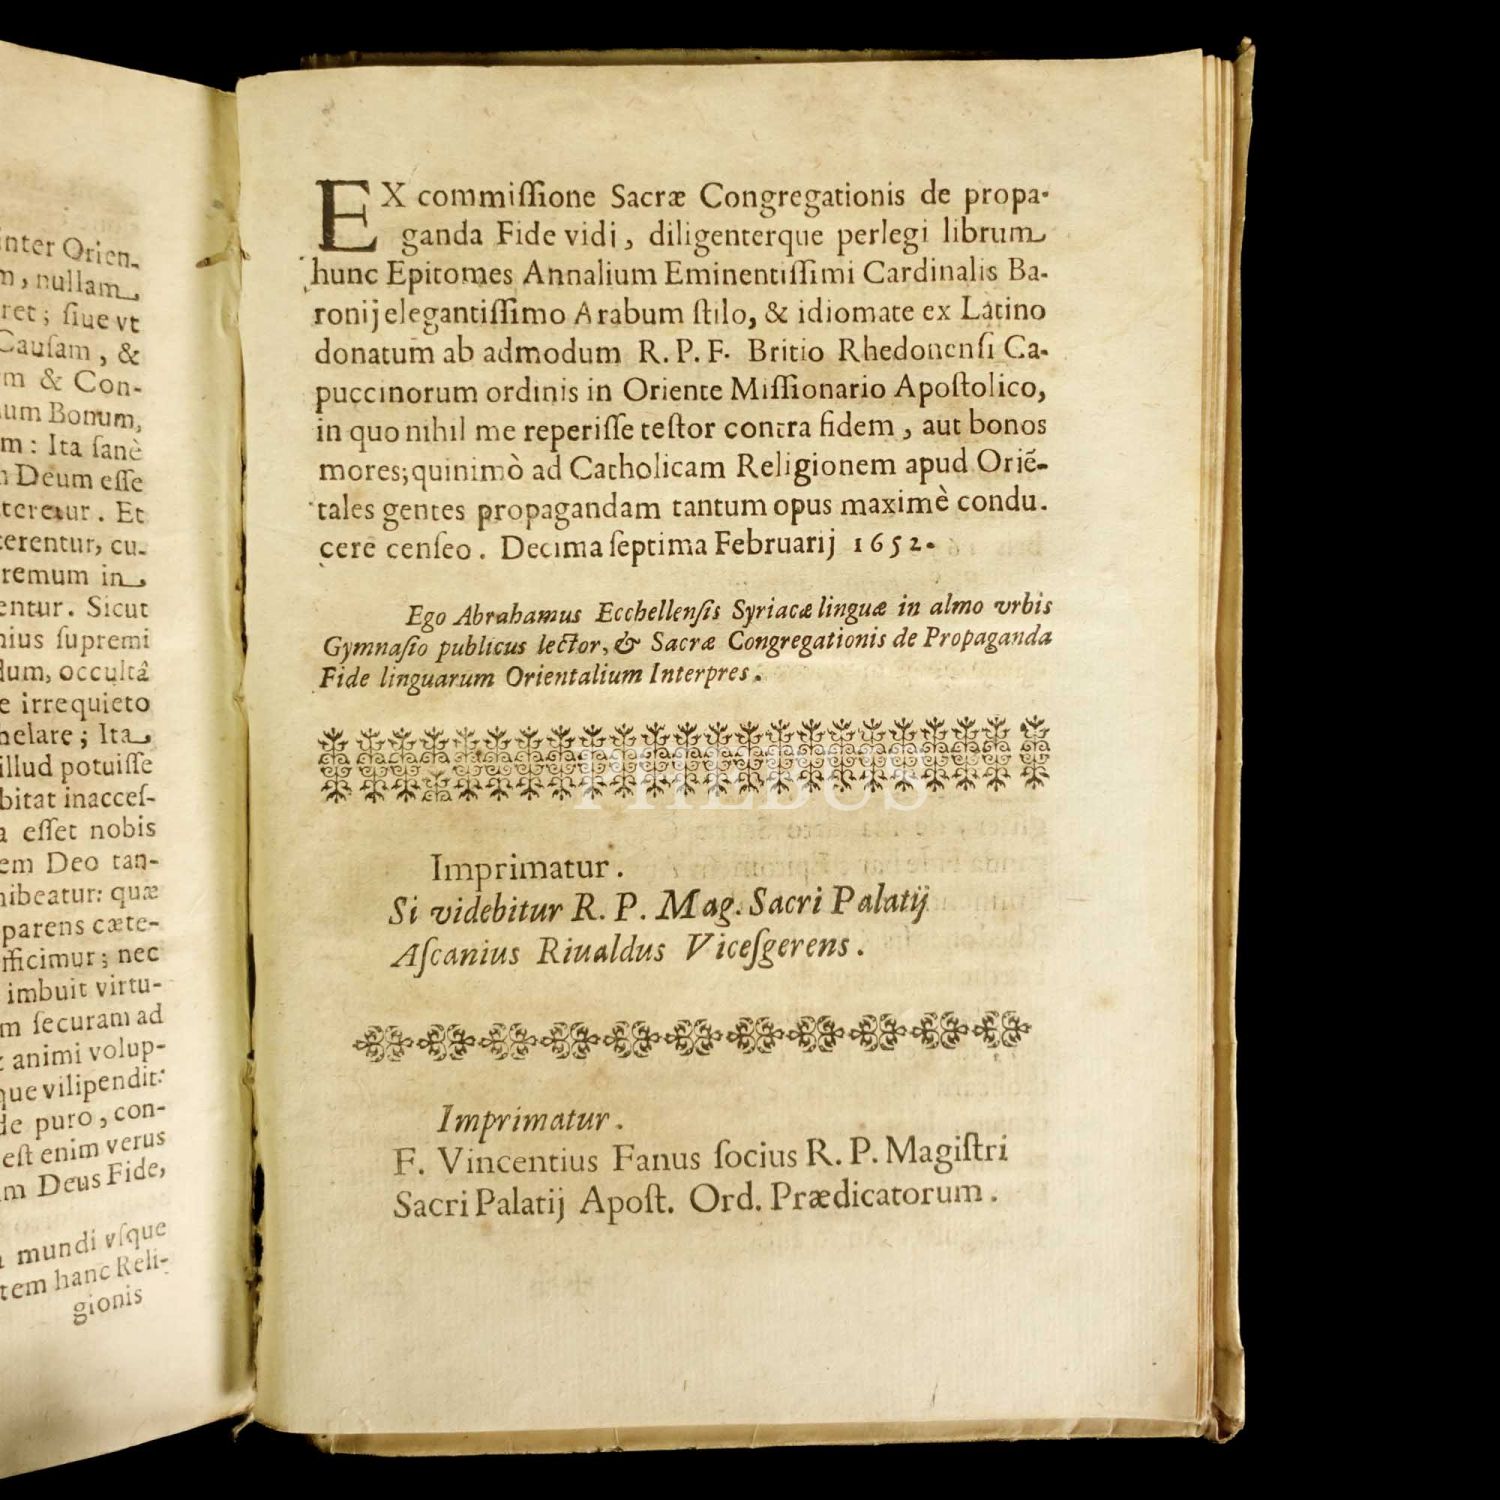 inter Orien-
m, nullam,
ret; ſiue vt
Cauſam, &
m & Con-
um Bonum,
m: Ita ſanè
Deum eſſe
teretur. Et
erentur, cu-
remum in,
entur. Sicut
nius ſupremi
dum, occultâ
e irrequieto
nelare; Ita,
illud potuiſſe
bitat inacceſ-
a eſſet nobis
em Deo tan-
hibeatur: quæ
parens cæte-
fficimur; nec
imbuit virtu-
m ſecuram ad
animi volup-
que vilipendit:
de puro, con-
eſt enim verus
m Deus Fide,
mundi vſque
tem hanc Reli-
gionis
EX commiſſione Sacræ Congregationis de propa-
ganda Fide vidi, diligenterque perlegi librum
hunc Epitomes Annalium Eminentiſſimi Cardinalis Ba-
ronij elegantiſſimo Arabum ſtilo, & idiomate ex Latino
donatum ab admodum R. P. F. Britio Rhedonenſi Ca-
puccinorum ordinis in Oriente Miſſionario Apoſtolico,
in quo nihil me reperiſſe teſtor contra fidem, aut bonos
mores; quinimò ad Catholicam Religionem apud Oriẽ-
tales gentes propagandam tantum opus maximè condu.
cere cenſeo. Decima ſeptima Februarij 1652.
Ego Abrahamus Ecchellenſis Syriacæ linguæ in almo vrbis
Gymnaſio publicus lector, & Sacræ Congregationis de Propaganda
Fide linguarum Orientalium Interpres.
PHEBUS
Imprimatur.
Si videbitur R. P. Mag. Sacri Palatij
Aſcanius Riualdus Viceſgerens.
Imprimatur.
F. Vincentius Fanus ſocius R. P. Magiſtri
Sacri Palatij Apoſt. Ord. Prædicatorum.